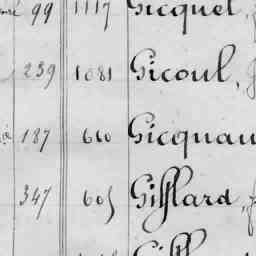 99 1117 Gicquel,
239 1081 Gicoul,
187 660 Gicquau
347 605 Gifflard,